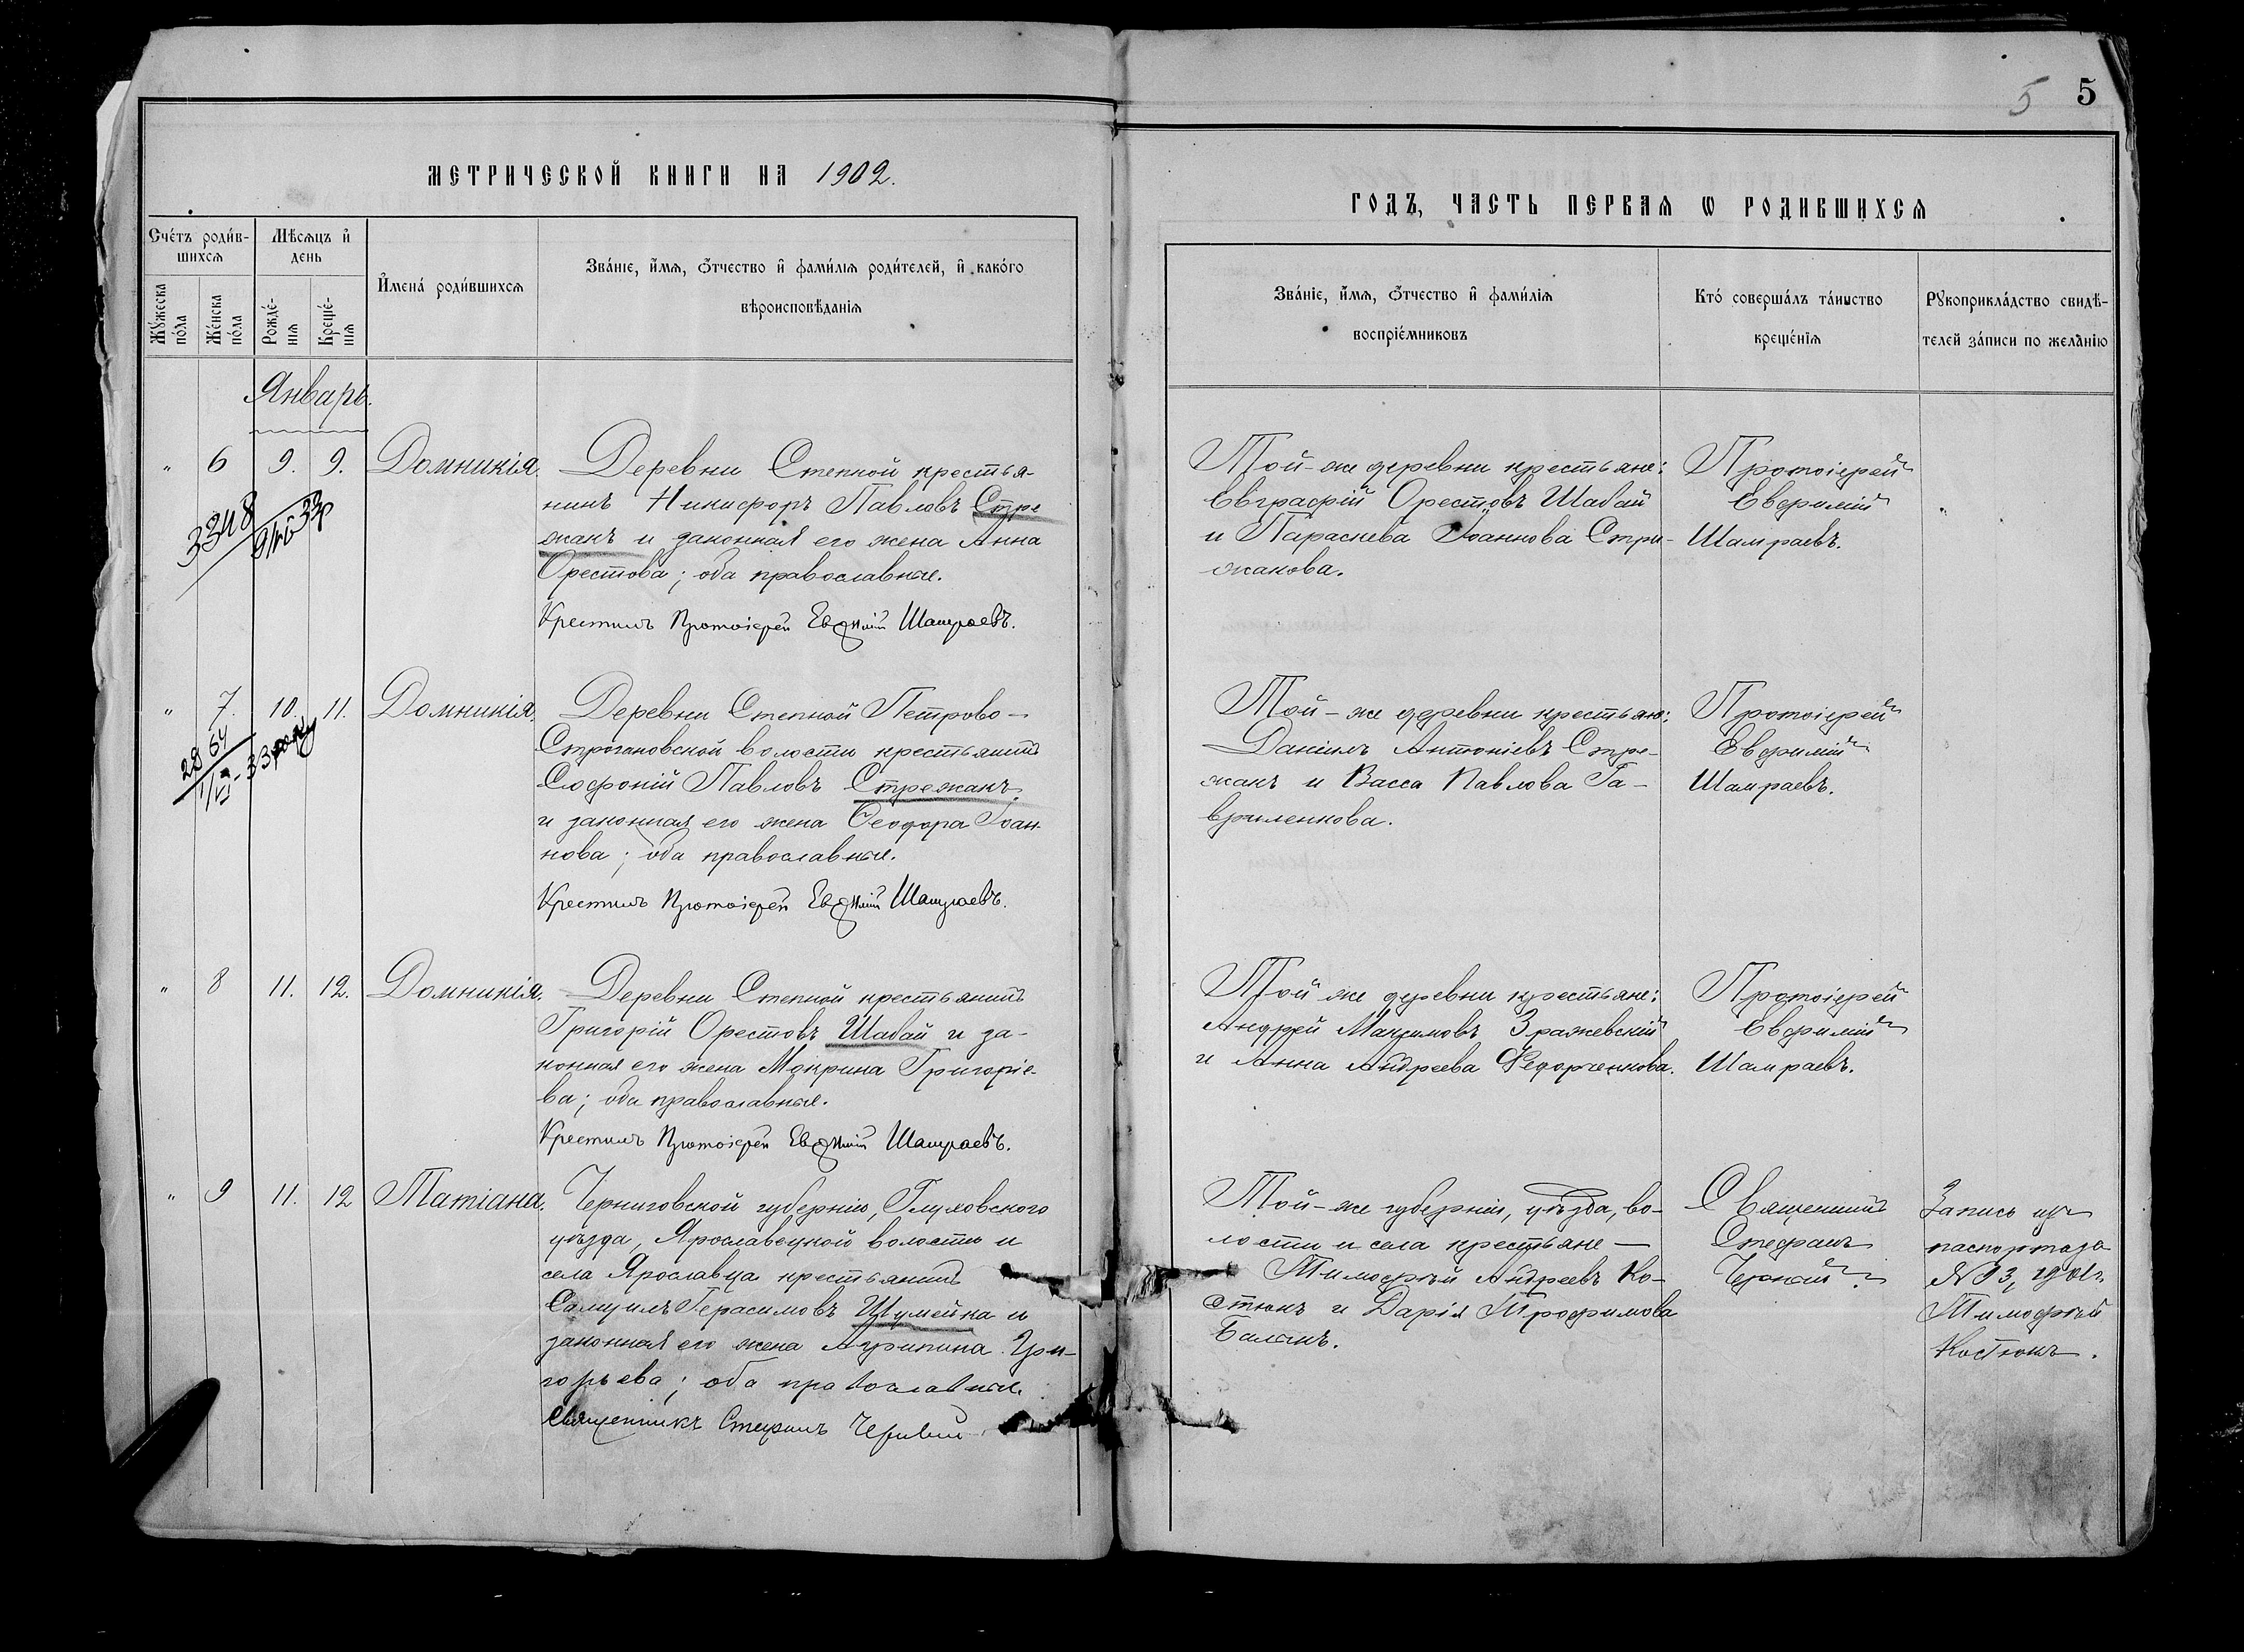 5 5
МЕТРИЧЕСКОЙ КНИГИ НА 1902.
ГОДЪ, ЧАСТЬ ПЕРВАЯ Ѡ РОДИВШИХСЯ
Сче́тъ роди́в-
шихсѧ
Мѣ́сѧцъ и҆
день
Мꙋ́жеска
по́ла
Же́нска
по́ла
Рожде́-
нїѧ
Креще́-
нїѧ
И҆мена́ роди́вшихсѧ
Зва́нїе, и҆́мѧ, ѻ҆́тчество и҆ фами́лїѧ роди́телей, и҆ како́го
вѣроисповѣ́данїѧ
Зва́нїе, и҆́мѧ, ѻ҆́тчество и҆ фами́лїѧ
воспрїе́мниковъ
Кто́ соверша́лъ та́инство
креще́нїѧ
Рꙋкоприкла́дство свидѣ́-
телей за́писи по жела́нїю
Январь.
" 6 9. 9. Домникія.
Деревни Степной крестья-
нинъ Никифоръ Павловъ Стре
жакъ и законная его жена Анна
Орестова; оба православные.
Крестилъ Протоіерей Евѳимій Шамраевъ.
Той-же деревни крестьяне:
Евграфій Орестовъ Шабай
и Параскева Іоаннова Стри-
жакова.
Протоіерей
Евфимій
Шамраевъ.
3348
" 7. 10. 11. Домникія.
Деревни Степной Петрово-
Строгановской волости крестьянинъ
Софроній Павловъ Стрежакъ
и законная его жена Ѳеодора Іоан-
нова; оба православные.
Крестилъ Протоіерей Евѳимій Шамраевъ.
Той-же деревни крестьяне:
Даніилъ Антоніевъ Стре-
жакъ и Васса Павлова Га-
вриленкова.
Протоіерей
Евфимій
Шамраевъ.
2864
" 8 11. 12. Домникія.
Деревни Степной крестьянинъ
Григорій Орестовъ Шабай и за-
конная его жена Мокрина Григоріе-
ва; оба православные.
Крестилъ Протоіерей Евѳимій Шамраевъ.
Той же деревни крестьяне:
Андрей Максимовъ Зражевскій
и Анна Андреева Федорченкова.
Протоіерей
Евфимій
Шамраевъ.
" 9 11. 12 Татіана.
Черниговской губерніи, Глуховского
уѣзда, Ярославецкой волости и
села Ярославца крестьянинъ
Самуилъ Герасимовъ Шумейка и
законная его жена Агрипина Гри-
горьева; оба православные.
Священникъ Стефанъ
Той-же губерніи, уѣзда, во-
лости и села крестьяне —
Тимофѣй Андреевъ Ко-
стюкъ и Дарія Трофимова
Баланъ.
Священникъ
Стефанъ
Запись изъ
паспорта за
№ 93, 1901 г.
Тимофѣй
Костюкъ.